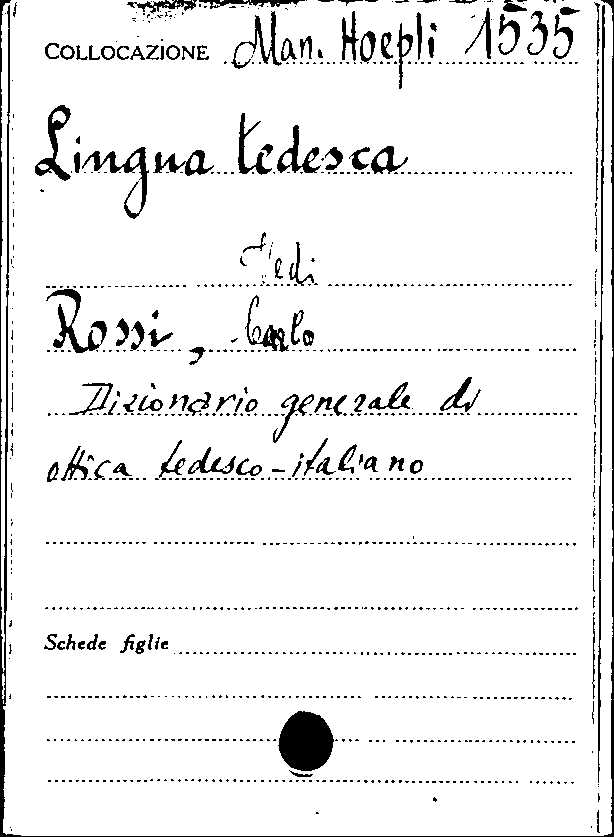 COLLOCAZIONE Man. Hoepli 1535
Lingua tedesca
Vedi
Rossi, Carlo
Dizionario generale di
ottica tedesco-italiano
Schede figlie